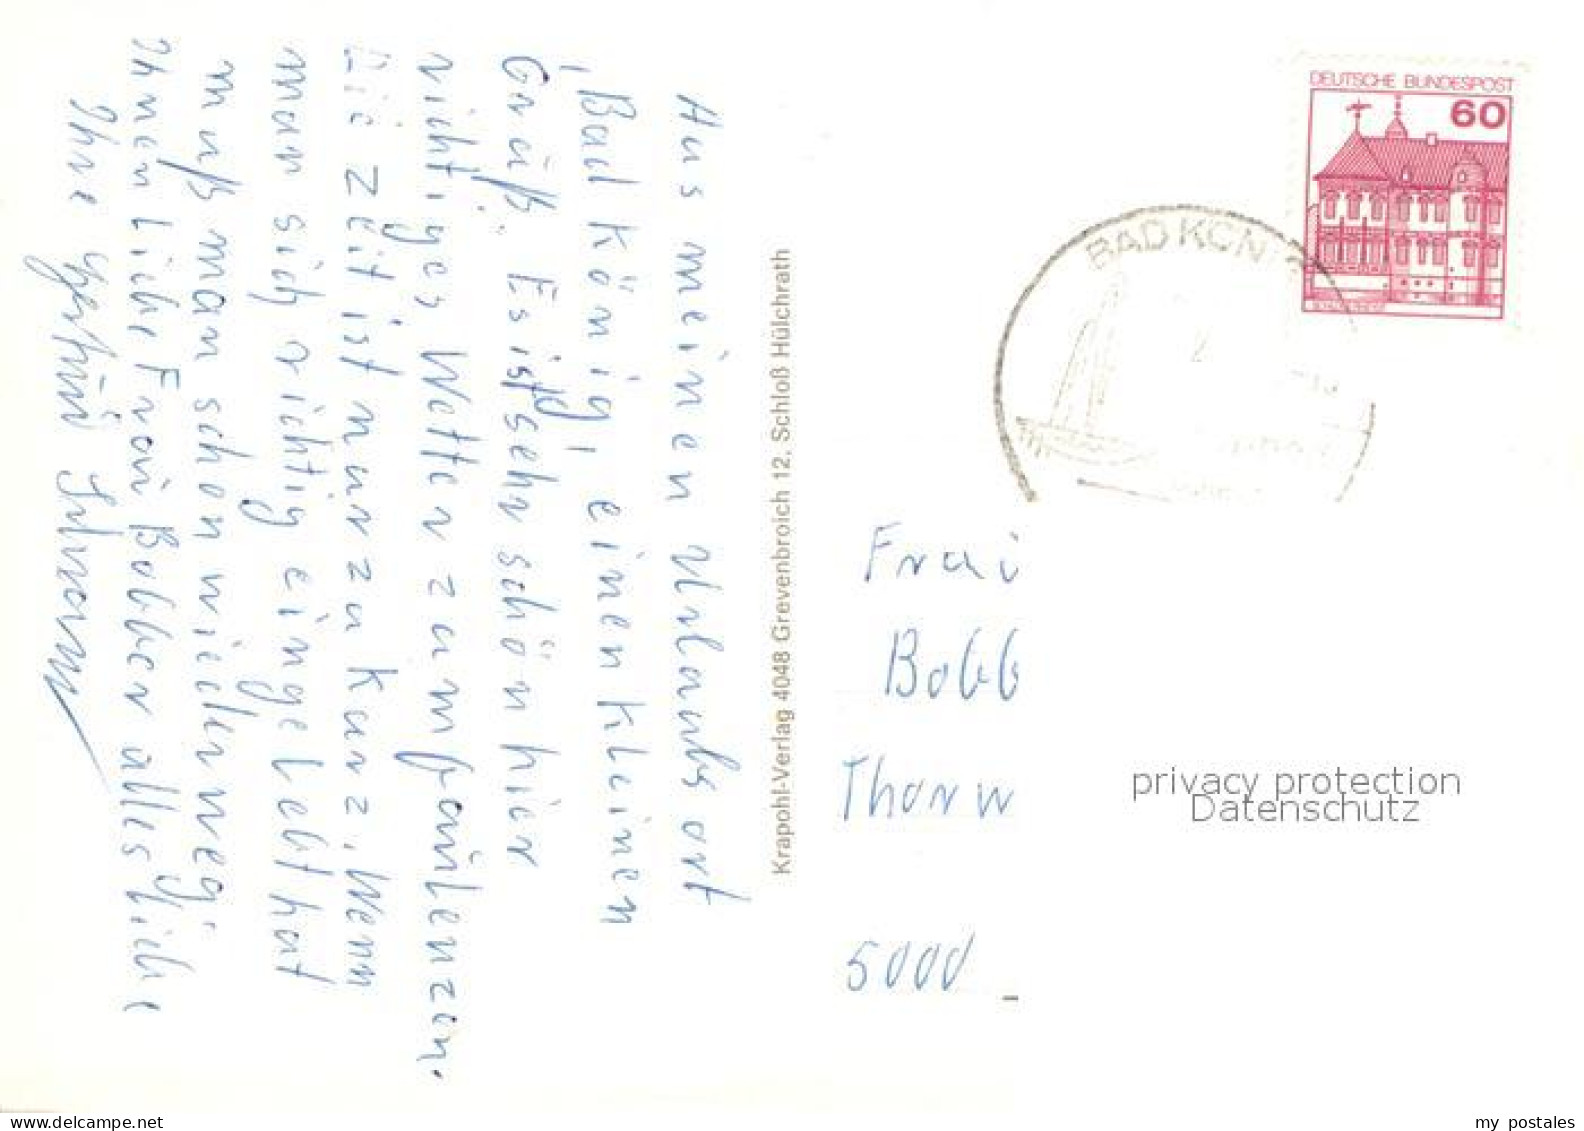 Aus meinen Urlaubsort
Bad König, einen kleinen
Gruß. Es ist sehr schön hier
richtiges Wetter zum faulenzen.
Die Zeit ist nur zu kurz, Wenn
man sich richtig eingelebt hat
muß man schon wieder weg.
Ihnen liebe Frau Bobber alles liebe
Ihre
Krapohl-Verlag 4048 Grevenbroich 12, Schloß Hülchrath
DEUTSCHE BUNDESPOST
60
BAD KÖNIG
Frau
Bobb
Thorw
5000
privacy protection
Datenschutz
www.delcampe.net
my postales